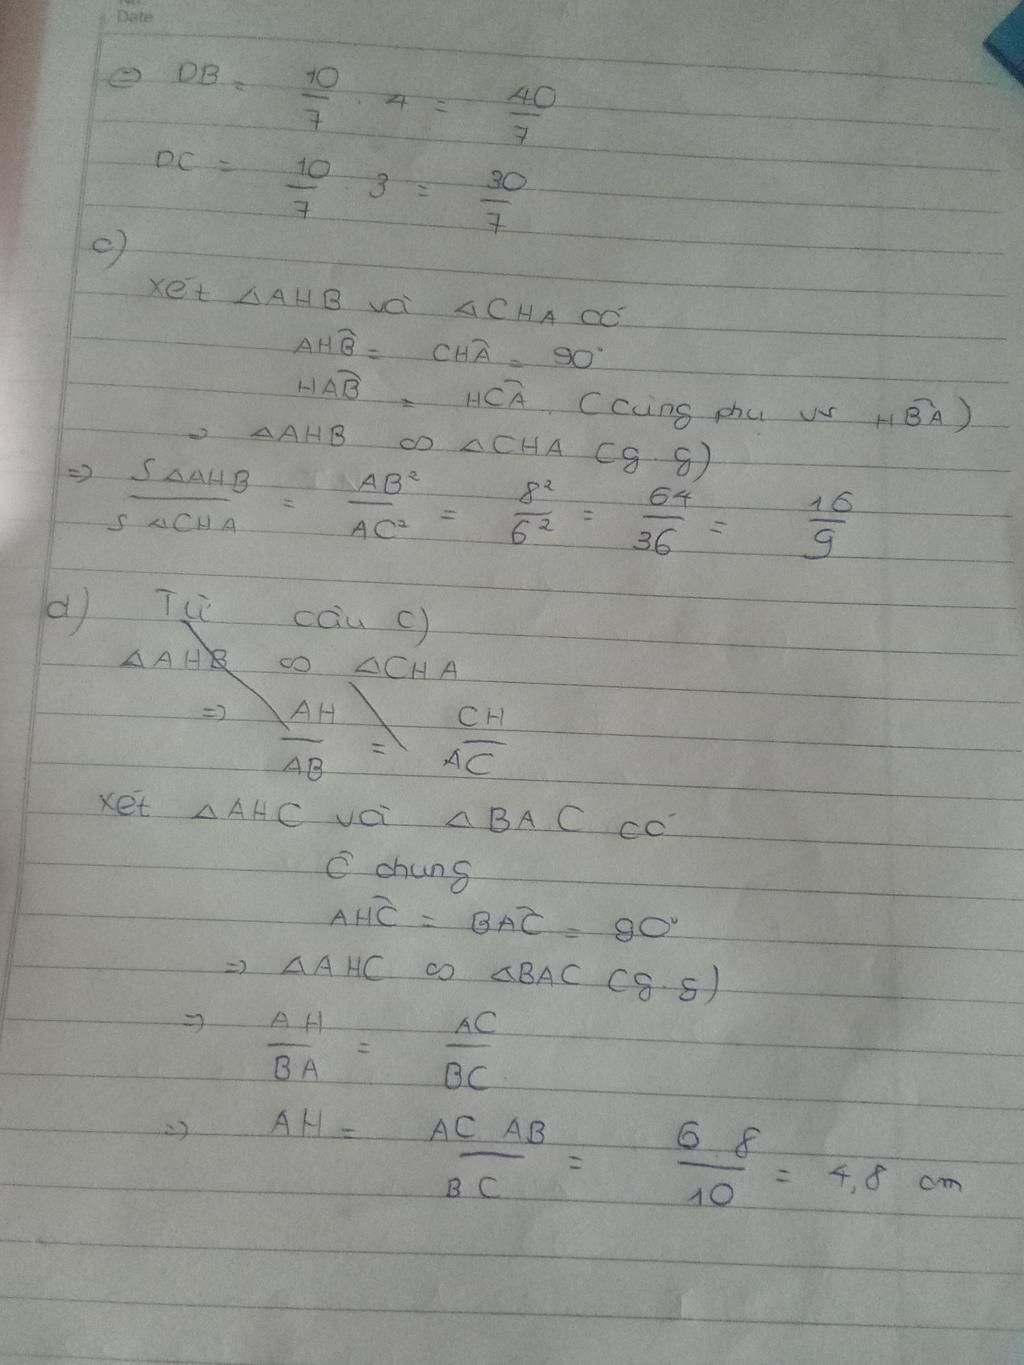 No.
Date
⇔ DB = 10/7 . 4 = 40/7
DC = 10/7 . 3 = 30/7
c)
Xét △AHB và △CHA có
AHB̂ = CHÂ = 90°
HAB̂ = HCÂ (cùng phụ vs HBÂ)
⇒ △AHB ∽ △CHA (g.g)
⇒ S△AHB/S△CHA = AB²/AC² = 8²/6² = 64/36 = 16/9
d) Từ câu c)
△AHB ∽ △CHA
⇒ AH/AB = CH/AC
Xét △AHC và △BAC có
Ĉ chung
AHĈ = BAĈ = 90°
⇒ △AHC ∽ △BAC (g.g)
⇒ AH/BA = AC/BC
⇒ AH = AC AB/BC = 6.8/10 = 4,8 cm